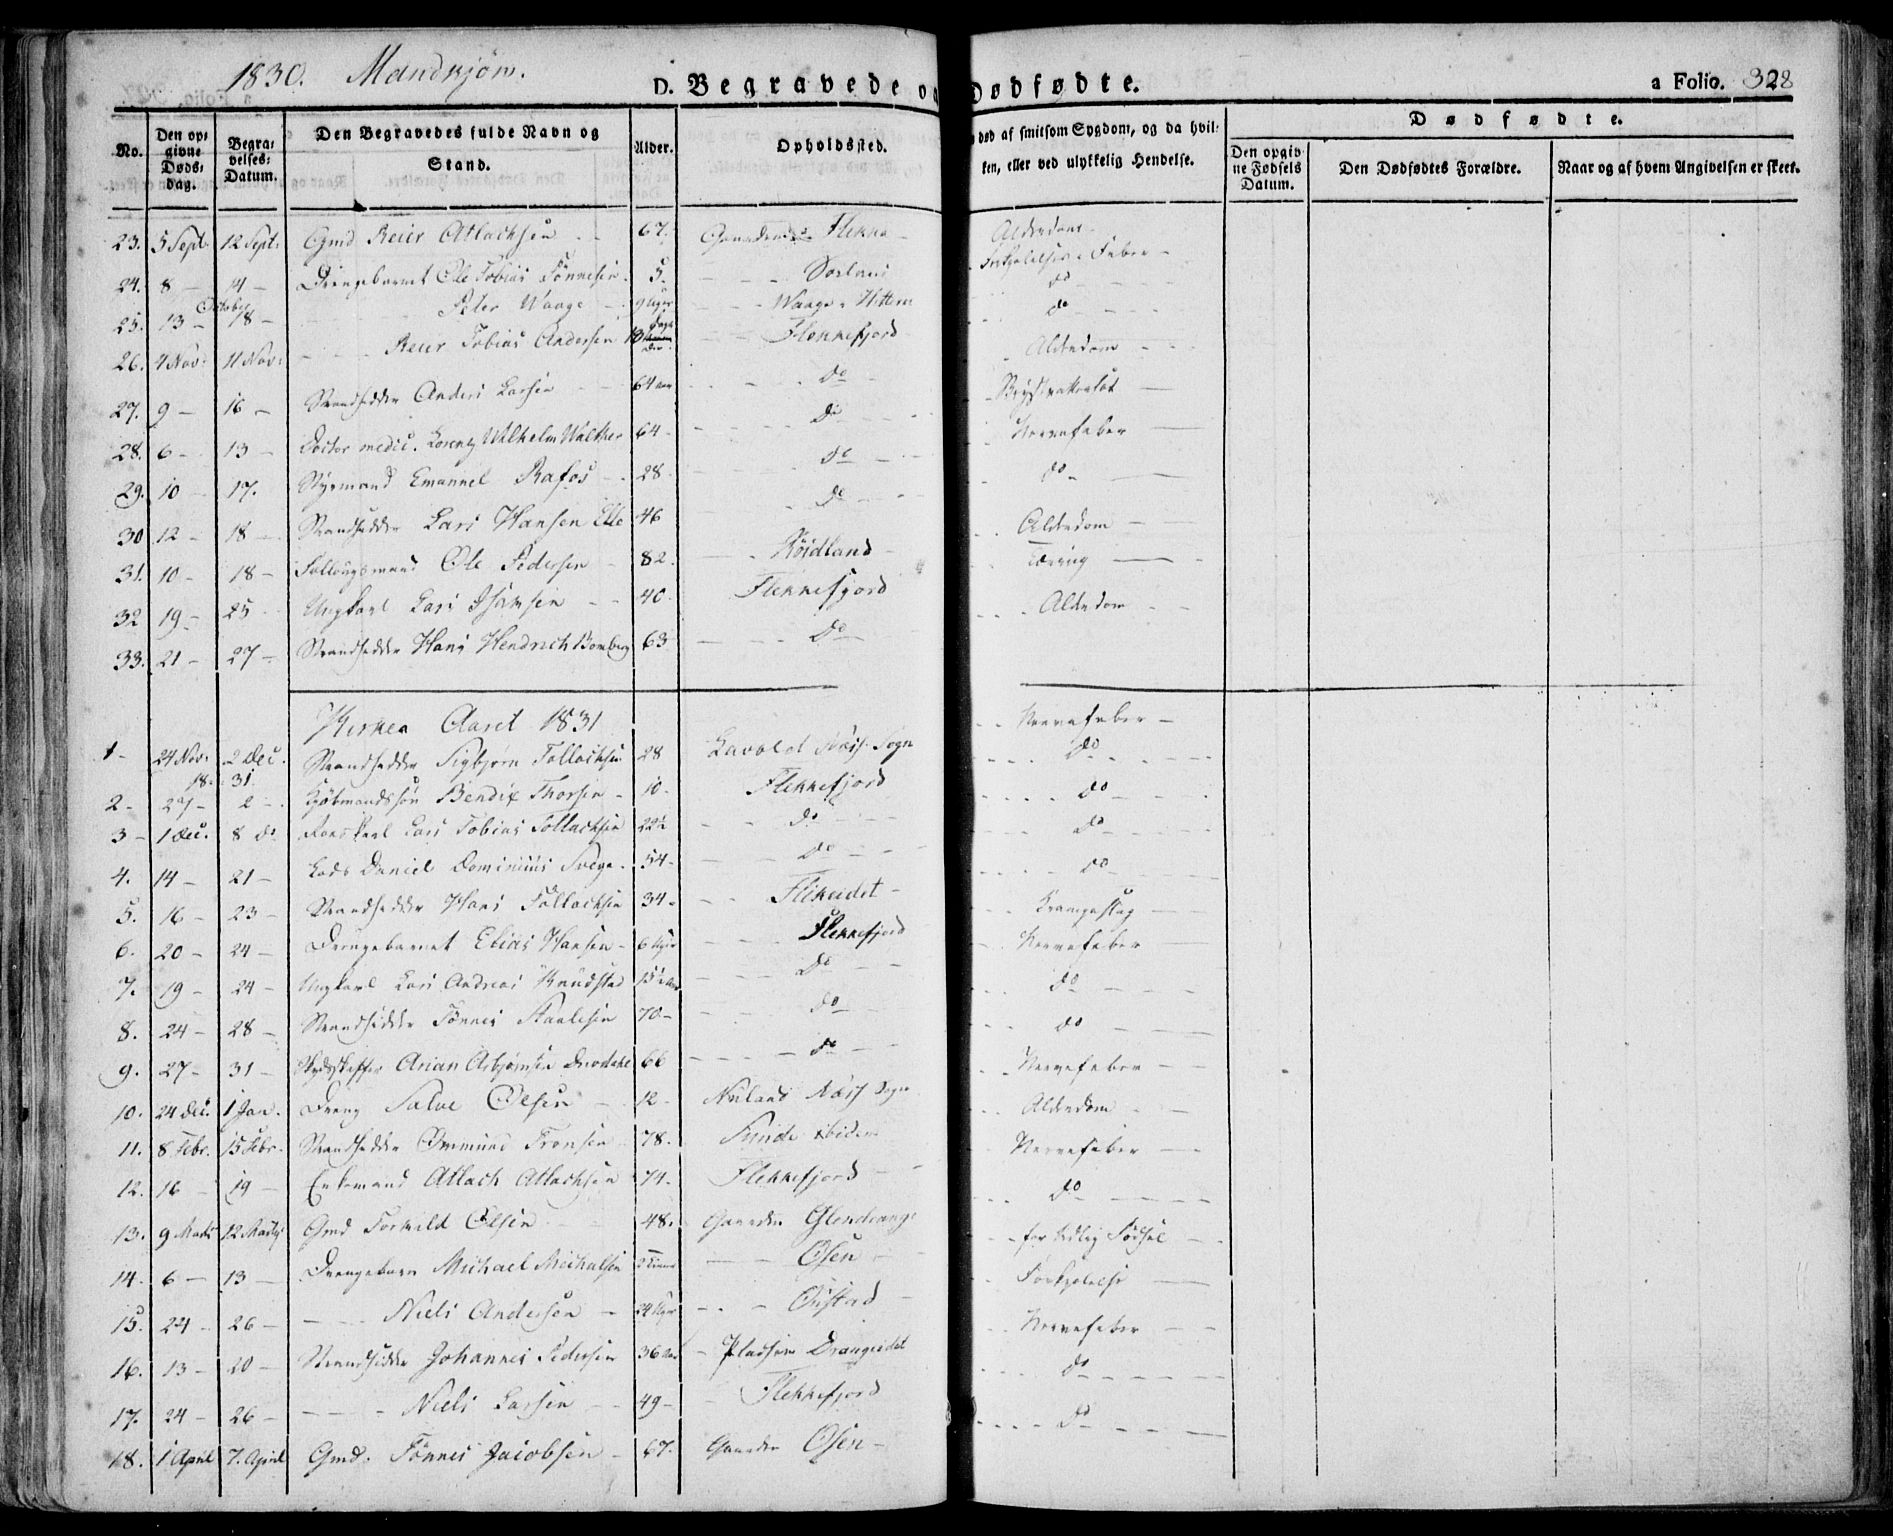 1830. Mandkjøn.
D. Begravede og Dødfødte.
a Folio. 328
No.
Den opgivne Døds-dag.
Begravelses-Datum.
Den Begravedes fulde Navn og Stand.
Alder.
Opholdssted.
død af smitsom Sygdom, og da hvilken, eller ved ulykkelig Hendelse.
Dødfødte.
Den opgivne Fødsels Datum.
Den Dødfødtes Forældre.
Naar og af hvem Angivelsen er skeet.
23. 5 Sept. 12 Sept. Gmd Reier Atlachsen 67. Gaarden Flikka Alderdom
24. 8 — 14 — Drengebarnet Ole Tobias Tønnesen 5. Sørland Forkjølelses Feber
25. 13 October 18 — Peter Waage 9 Uger Waage Hitterø do
26. 4 Nov: 11 Nov: Reier Tobias Andersen 13 Dage Flekkefjord do
27. 9 — 16 — Strandsidder Anders Larsen 64 aar do Alderdom
28. 6 — 13 — Doctor medic. Lorentz Wilhelm Walther 64 do
29. 10 17. Styrmand Emanuel Rafos 28 do Nervefeber
30 12 — 18 — Strandsidder Lars Hansen Elle 46 do do
31. 10 — 18 — Ole Pedersen 82. Høidland Alderdom
32 19 — 25 Ungkarl Lars Isaksen 40. Flekkefjord Tæring
33. 21 — 27 — Strandsidder Hans Hendrich Bomberg 63 do Alderdom
Kirke Aaret 1831
1 — 24 Nov: 2 Dec. Strandsidder Sigbjørn Tollachsen 28 Lavold Næss Sogn Nervefeber
18 31
2 — 27 — 2 — Kjøbmandssøn Bendix Thorsen 10. Flekkefjord do
3 — 1 Dec. 8 do Lars Tobias Tollachsen 22½ do do
4. 14 — 21 — Lods Daniel Dominicus Svege 54 do do
5. 16 — 23 — Strandsidder Hans Tollachsen 34 Flikeidet do
6. 20 — 24 — Drengebarnet Elias Hansen 6 Uger Flekkefjord Krampeslag
7. 19 — 24 — Ungkarl Lars Andreas Knudstad 15½ aar do Nervefeber
8. 24 — 28 — Strandsidder Tønnes Staalesen 70 do do
9. 27 — 31 — Skydsskaffer Arian Asbjørnsen 66 do do
10. 24 Dec. 1 Jan. Dreng Salve Olsen 12 Nuland Næss Sogn Nervefeber
11. 8 Febr. 15 Febr. Strandsidder Ommund Tronsen 78. Sunde ibidem Alderdom
12. 16 19 — Enkemand Atlach Atlachsen 74. Flekkefjord Nervefeber
13. 9 Marts 12 Marts Gmd Torkild Olsen 48. Gaarden Glendrange do
14. 6 — 13 — Drengebarn Michael Michalsen Timer Osen for tidlig Fødsel
15. 24 26 — Niels Andersøn 24 Uger Øistad Forkjølelse
16. 13 — 20 — Strandsidder Johannes Pedersen 36 aar Pladsen Drangeidet Nervefeber
17. 24 — 26 — Niels Larsen 49 — Flekkefjord do
18. 1 April 7. April Gmd. Tønnes Jacobsen 67. Gaarden Osen do